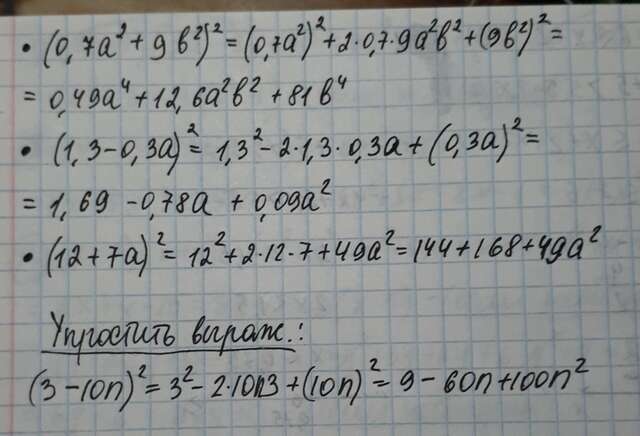 • (0,7a² + 9b²)² = (0,7a²)² + 2·0,7·9a²b² + (9b²)² =
= 0,49a⁴ + 12,6a²b² + 81b⁴
• (1,3 - 0,3a)² = 1,3² - 2·1,3·0,3a + (0,3a)² =
= 1,69 - 0,78a + 0,09a²
• (12 + 7a)² = 12² + 2·12·7 + 49a² = 144 + 168 + 49a²
Упростить выраж.:
(3 - 10n)² = 3² - 2·10n3 + (10n)² = 9 - 60n + 100n²